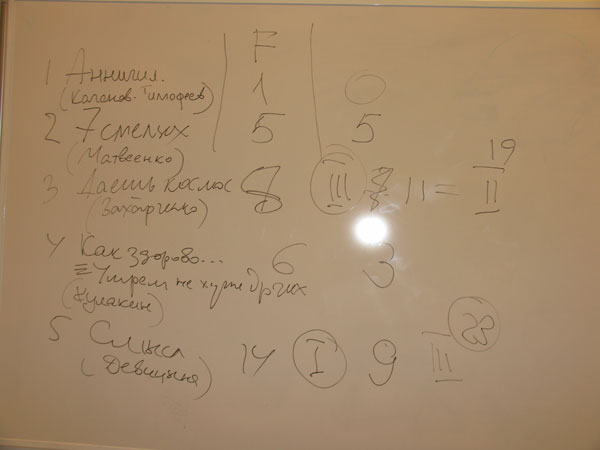 F
1 Аннигил. 1 0
(Каганов-Тимофеев)
2 7 смелых 5 5
(Матвеенко)
3 Даешь космос 8 III 11 = II 19
(Захарченко)
4 Как здорово... 6 3
Умрем не хуже других
(Кулакин)
5 Смысл 14 I 9 III 23
(Девицына)